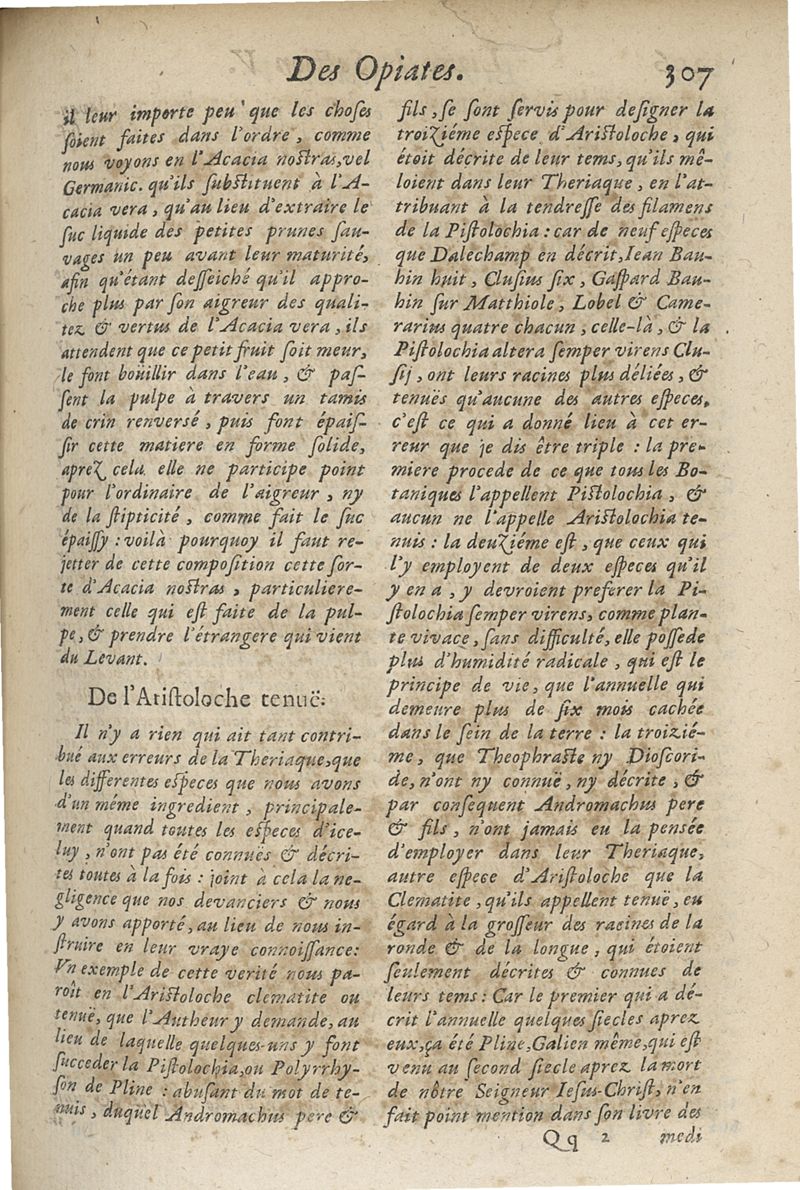 Des Opiates. 307
il leur importe peu que les choſes
ſoient faites dans l'ordre, comme
nous voyons en l'Acacia noſtras, vel
Germanic. qu'ils ſubſtituent à l'A-
cacia vera, qu'au lieu d'extraire le
ſuc liquide des petites prunes ſau-
vages un peu avant leur maturité,
afin qu'étant deſſeiché qu'il appro-
che plus par ſon aigreur des quali-
tez & vertus de l'Acacia vera, ils
attendent que ce petit fruit ſoit meur,
le font boüillir dans l'eau, & paſ-
ſent la pulpe à travers un tamis
de crin renverſé, puis font épaiſ-
ſir cette matiere en forme ſolide,
aprez cela elle ne participe point
pour l'ordinaire de l'aigreur, ny
de la ſtipticité, comme fait le ſuc
épaiſſy : voilà pourquoy il faut re-
jetter de cette compoſition cette ſor-
te d'Acacia noſtras, particuliere-
ment celle qui eſt faite de la pul-
pe, & prendre l'étrangere qui vient
du Levant.
De l'Ariſtoloche tenuë.
Il n'y a rien qui ait tant contri-
bué aux erreurs de la Theriaque, que
les differentes eſpeces que nous avons
d'un méme ingredient, principale-
ment quand toutes les eſpeces d'ice-
luy, n'ont pas été connuës & décri-
tes toutes à la fois : joint à cela la ne-
gligence que nos devanciers & nous
y avons apporté, au lieu de nous in-
ſtruire en leur vraye connoiſſance:
Vn exemple de cette verité nous pa-
roît en l'Ariſtoloche clematite ou
tenuë, que l'Autheur y demande, au
lieu de laquelle quelques-uns y font
ſucceder la Piſtolochia, ou Polyrrhy-
ſon de Pline : abuſant du mot de te-
nuis, duquel Andromachus pere &
fils, ſe ſont ſervis pour deſigner la
troiziéme eſpece d'Ariſtoloche, qui
étoit décrite de leur tems, qu'ils mê-
loient dans leur Theriaque, en l'at-
tribuant à la tendreſſe des filamens
de la Piſtolochia : car de neuf eſpeces
que Dalechamp en décrit, Iean Bau-
hin huit, Cluſius ſix, Gaſpard Bau-
hin ſur Matthiole, Lobel & Came-
rarius quatre chacun, celle-là, & la
Piſtolochia altera ſemper virens Clu-
ſij, ont leurs racines plus déliées, &
tenuës qu'aucune des autres eſpeces,
c'eſt ce qui a donné lieu à cet er-
reur que je dis être triple : la pre-
miere procede de ce que tous les Bo-
taniques l'appellent Piſtolochia, &
aucun ne l'appelle Ariſtolochia te-
nuis : la deuziéme eſt, que ceux qui
l'y employent de deux eſpeces qu'il
y en a, y devroient preferer la Pi-
ſtolochia ſemper virens, comme plan-
te vivace, ſans difficulté, elle poſſede
plus d'humidité radicale, qui eſt le
principe de vie, que l'annuelle qui
demeure plus de ſix mois cachée
dans le ſein de la terre : la troizié-
me, que Theophraſte ny Dioſcori-
de, n'ont ny connuë, ny décrite, &
par conſequent Andromachus pere
& fils, n'ont jamais eu la penſée
d'employer dans leur Theriaque,
autre eſpece d'Ariſtoloche que la
Clematite, qu'ils appellent tenuë, eu
égard à la groſſeur des racines de la
ronde & de la longue, qui étoient
ſeulement décrites & connues de
leurs tems : Car le premier qui a dé-
crit l'annuelle quelques ſiecles aprez
eux, ça été Pline, Galien même, qui eſt
venu au ſecond ſiecle aprez la mort
de nôtre Seigneur Ieſus-Chriſt, n'en
fait point mention dans ſon livre des
Qq 2 medi